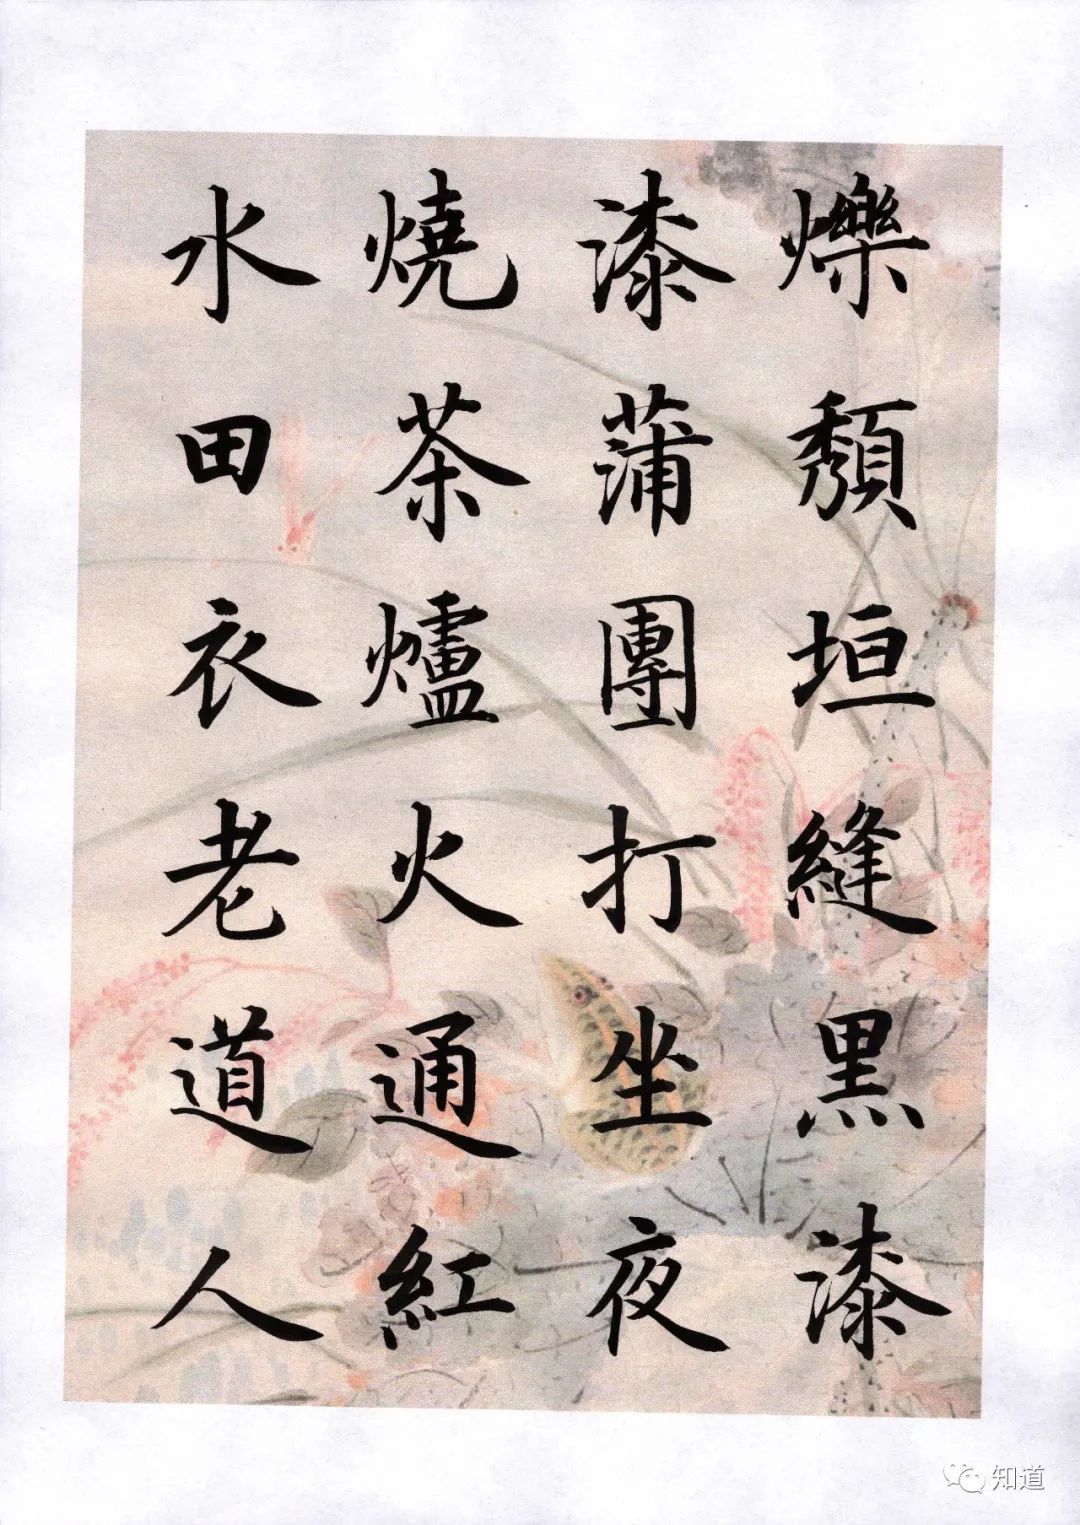 爍頹垣縫黑漆
漆蒲團打坐夜
燒茶爐火通紅
水田衣老道人
知道